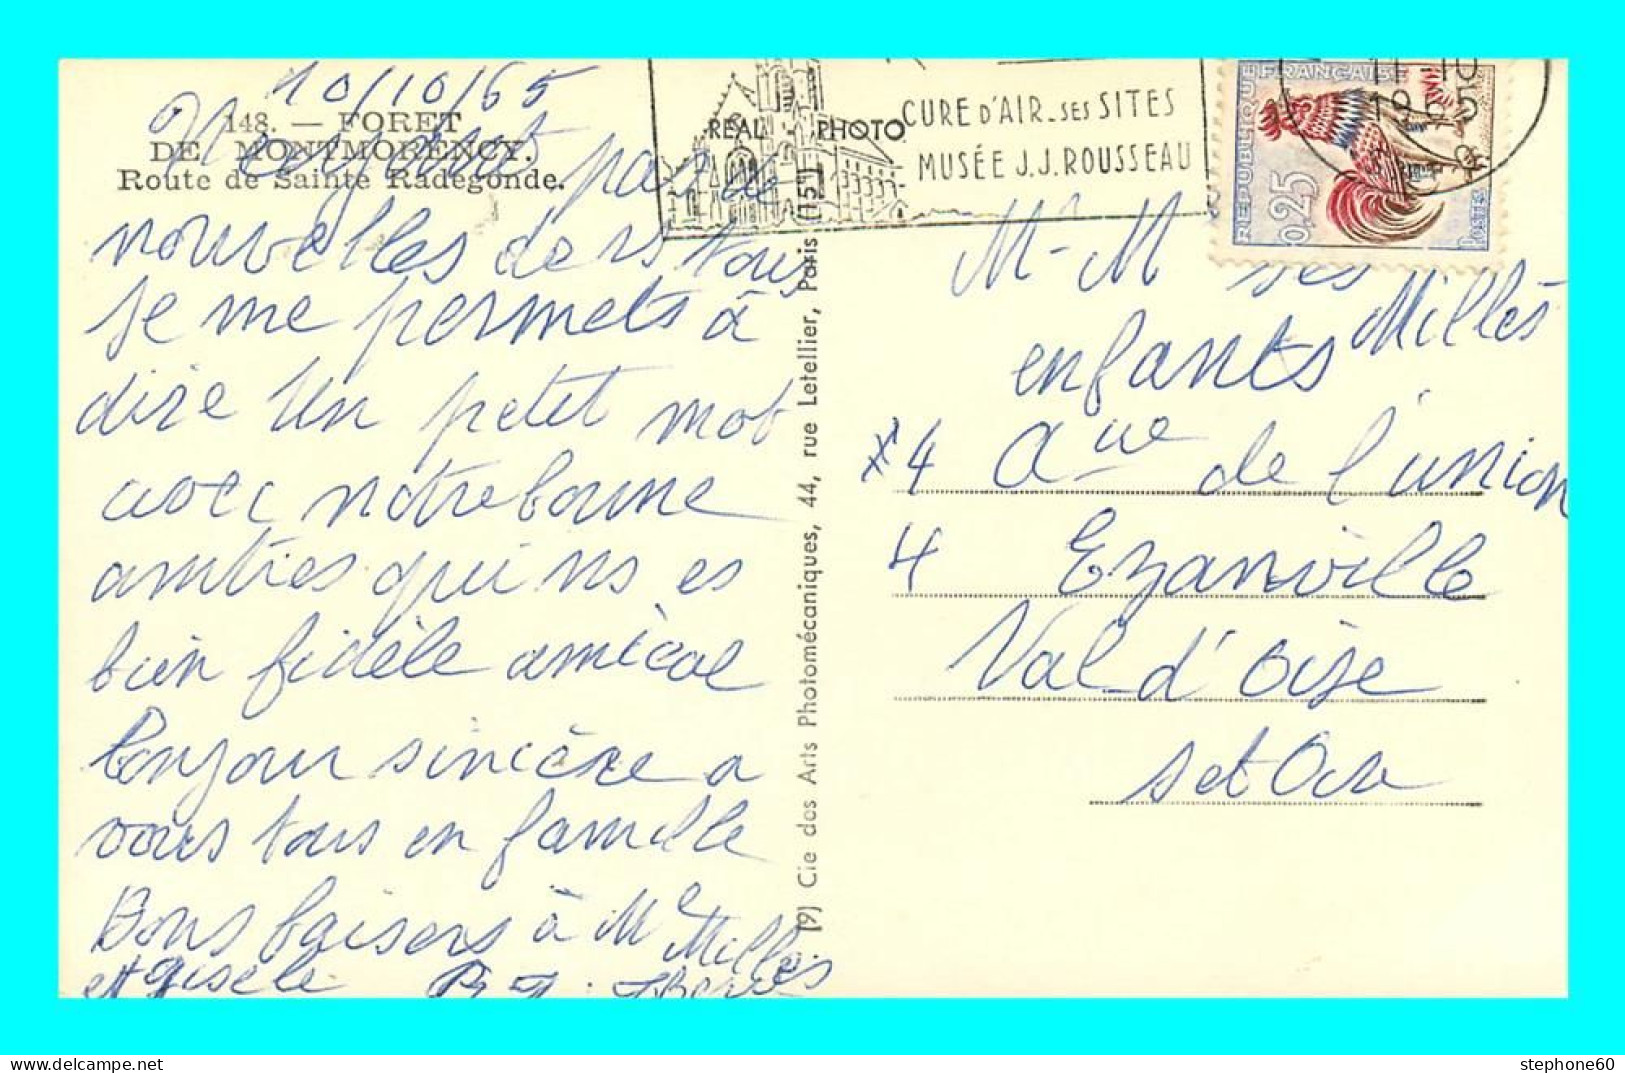 10/10/65
148. — FORET
DE MONTMORENCY.
Route de Sainte Radegonde.
pas de
nouvelles de vs tous
je me permets à
dire un petit mot
avec notre bonne
amitiés qui ns es
bien fidèle amical
bonjour sincère a
vous tous en famille
Bons baisers à Me Millès
et Gisèle
(9) Cie des Arts Photomécaniques, 44, rue Letellier, Paris (15e)
REAL PHOTO
CURE D'AIR_SES SITES
MUSÉE J.J.ROUSSEAU
REPUBLIQUE FRANÇAISE
0,25
POSTES
1965
M-M ses
enfants Millès
4 Ave de l'union
4 Ezanville
Val d'Oise
set Ose
stephone60